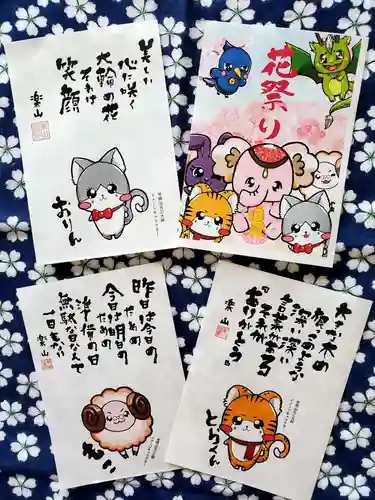 美しい
心に咲く
大輪の花
それは
笑顔
楽山
おりん
花祭り
昨日は今日の
ため
今日は明日の
ための
準備の日
無駄な日なんて
一日も無い
楽山
大きな木の
根っこのような
深い深い
言葉がある
それが
ありがとう。
楽山
とらくん